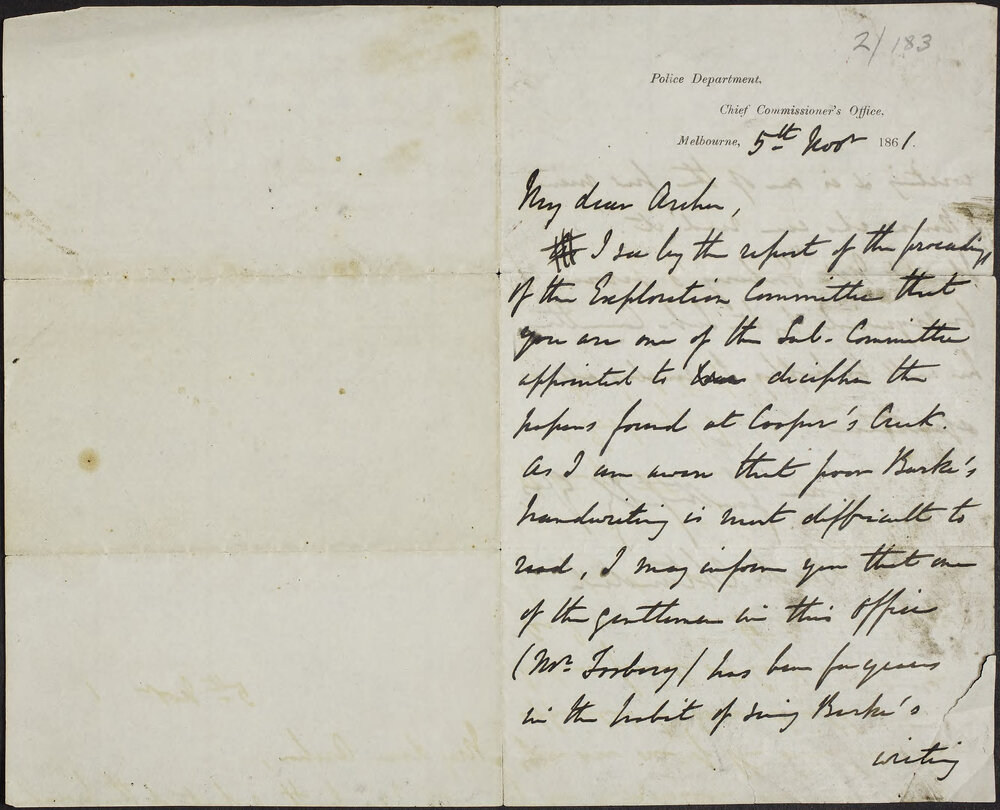 2/183
Police Department,
Chief Commissioner's Office,
Melbourne, 5th Novr 1861.
My dear Archer,
I see by the report of the proceedings
of the Exploration Committee that
you are one of the Sub-Committee
appointed to decipher the
papers found at Cooper's Creek.
As I am aware that poor Burke's
handwriting is most difficult to
read, I may inform you that one
of the gentlemen in this Office
(Mr. Fosbery) has been for years
in the habit of seeing Burke's
writing